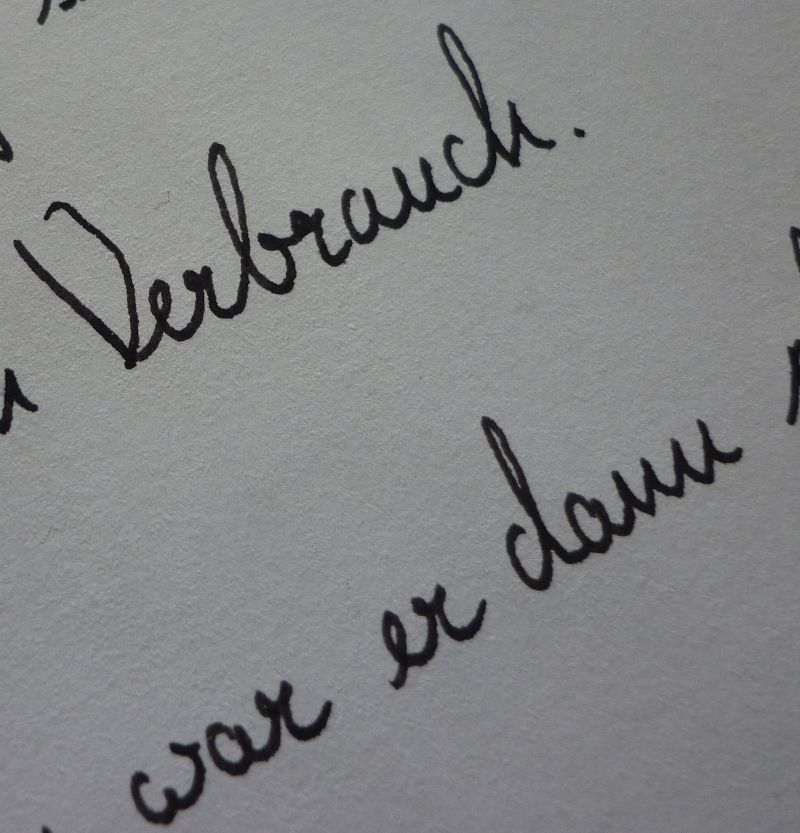 Verbrauch.
war er dann